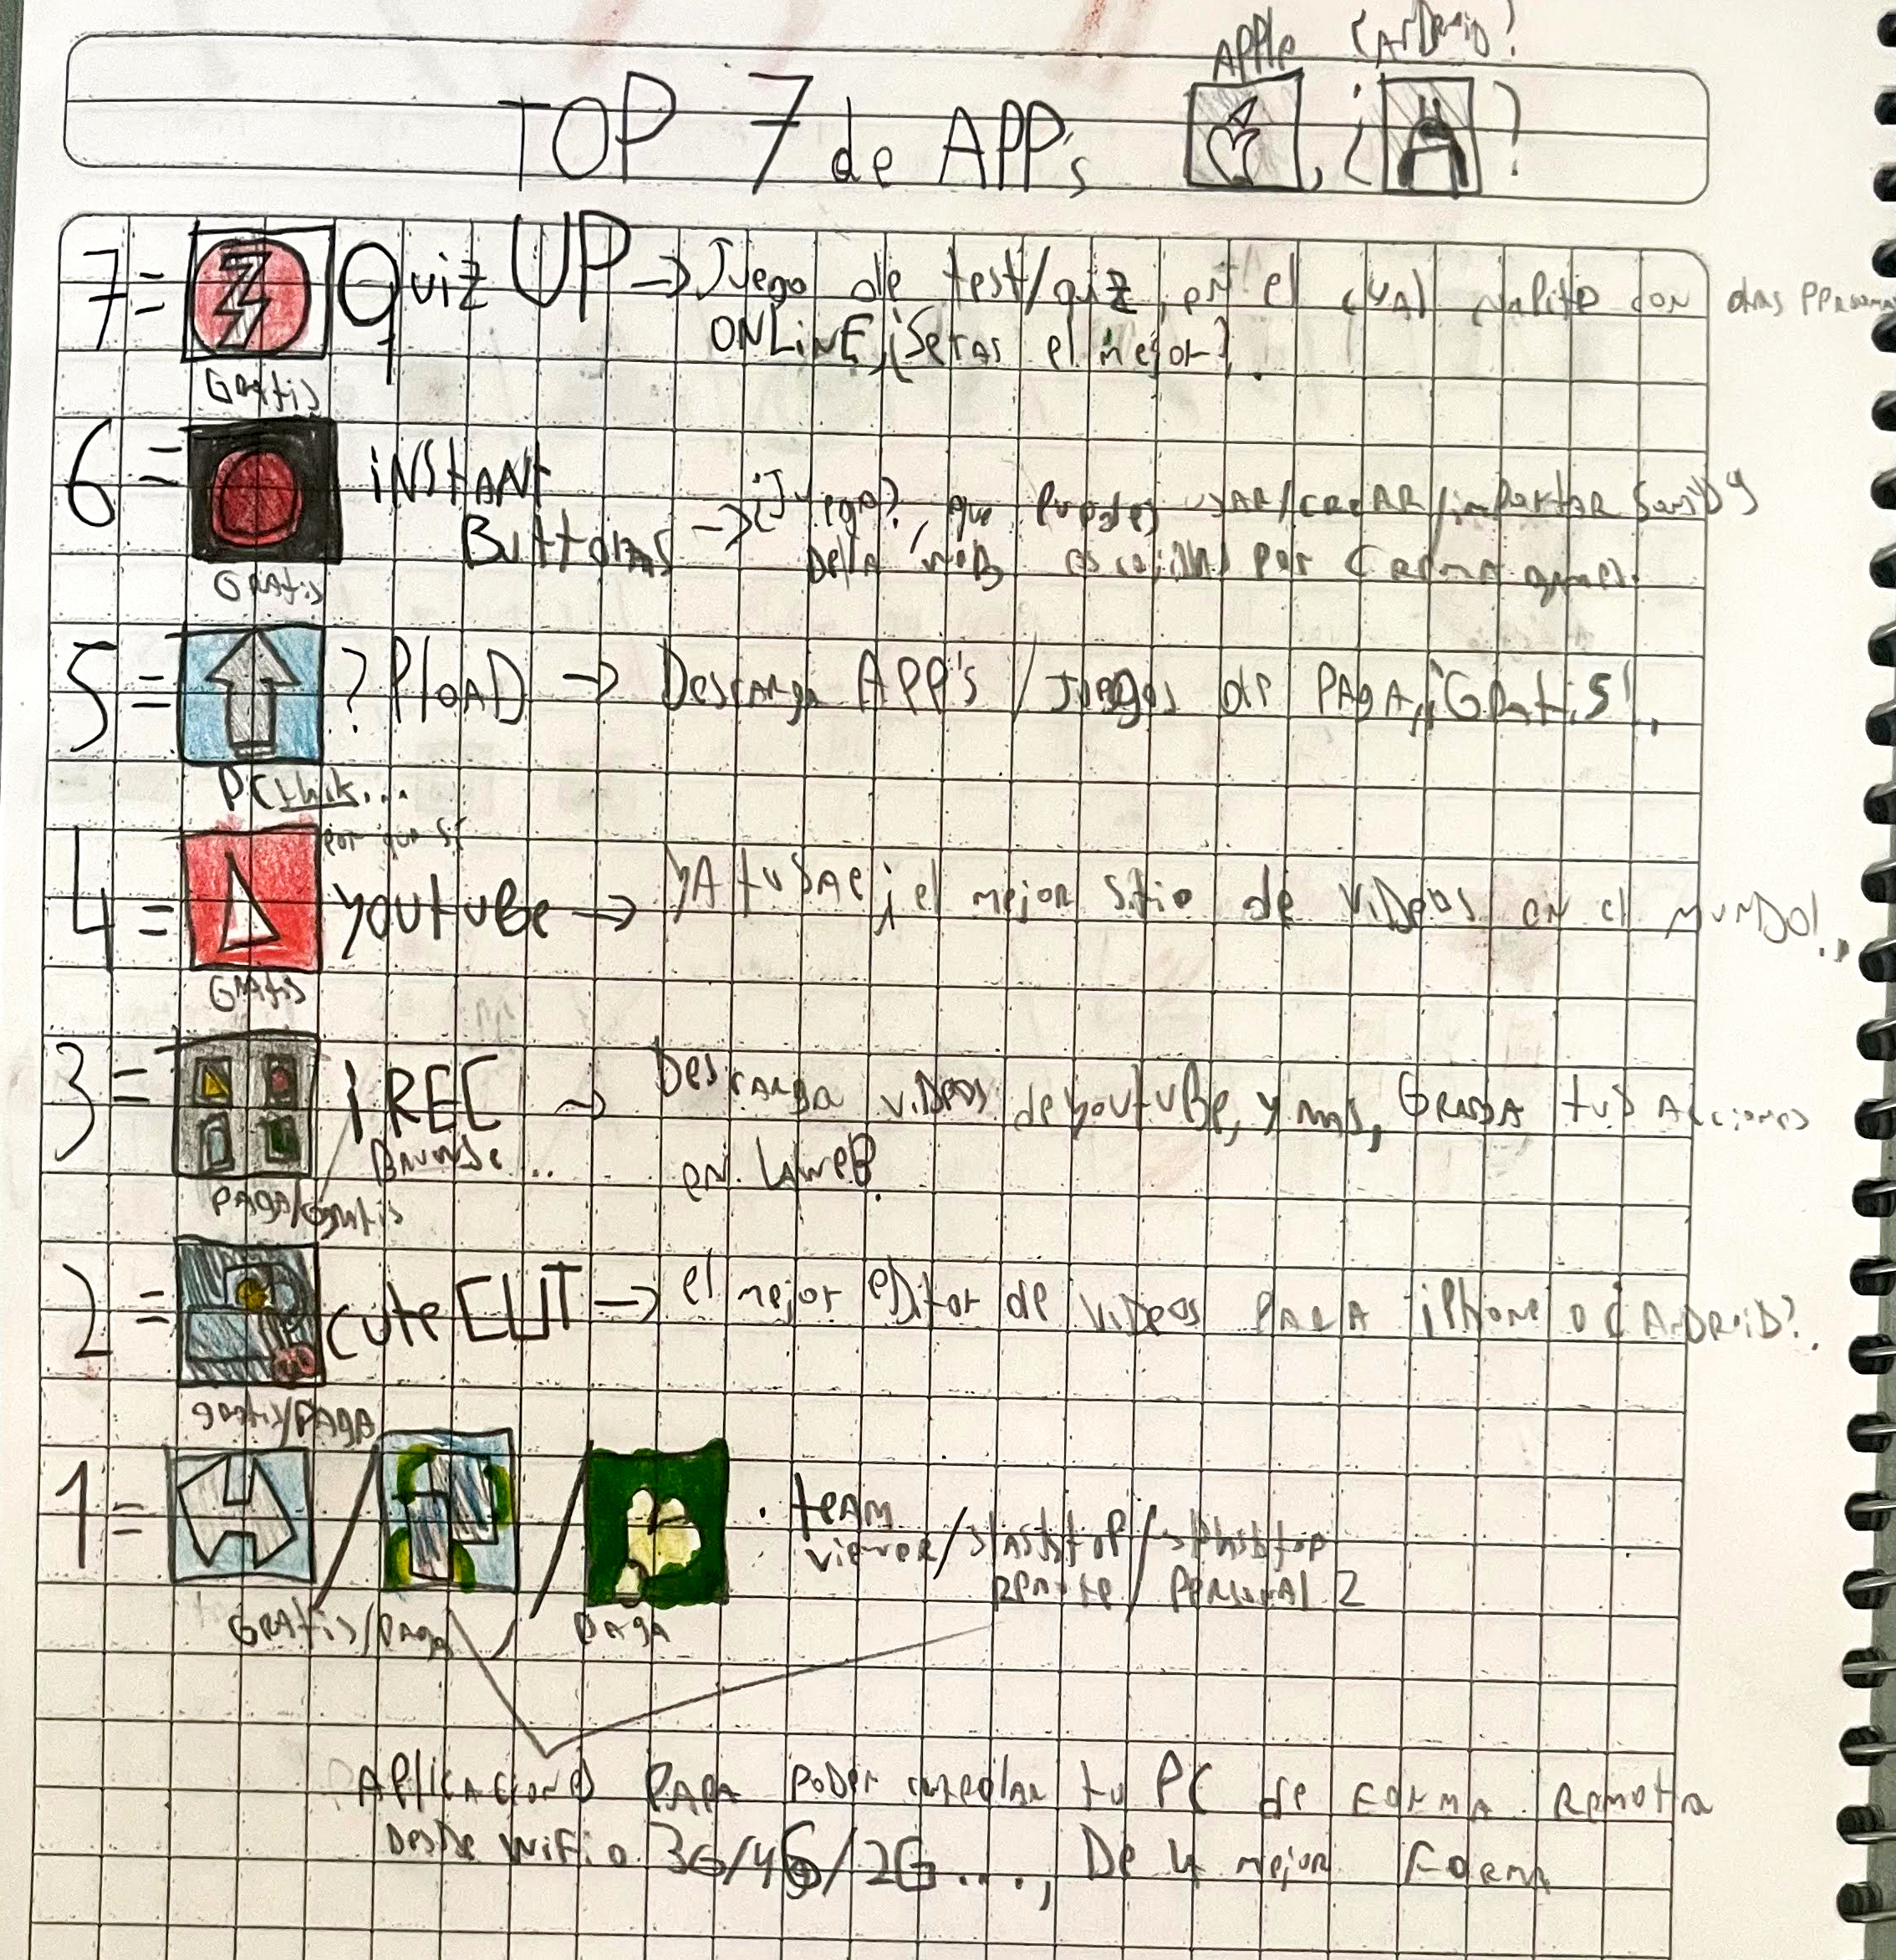 Apple ¿Android?
TOP 7 de APP's , ¿ ?
7= Quiz UP → Juego de test/quiz, en el cual con otras
ONLINE, ¿Seras el mejor?.
Gratis
6= iNStANt
Buttons → ¿Juego?, que Puedes usAR/creAR/importAR
De la web por
GRAtis
5= ?PloAD → DescArga APP's / Juegos de PAgA, ¡GRatiS!.
PC
por que si
4= youtuBe → yA tu SAbe, ¡el mejor sitio de ViDeos en el MuNDo!.
GRAtis
3= i REC → DescArga viDeos de youtuBe, y mas, GRABA tus Acciones
... en LA weB.
PAgA/Gratis
2= cute CUT → el mejor eDitor de ViDeos PARA iPhone o ¿ANDRoiD?.
gratis/PAgA
1= / / . teAm
viewer/ /splashtop
Remote/ PeRsonAl 2
GRAtis/PAgA PAgA
APlicAciones PARA PoDer contRolAR tu PC de FoRmA Remota
DesDe wiFi o 3G/4G/2G....., De la mejor FoRmA